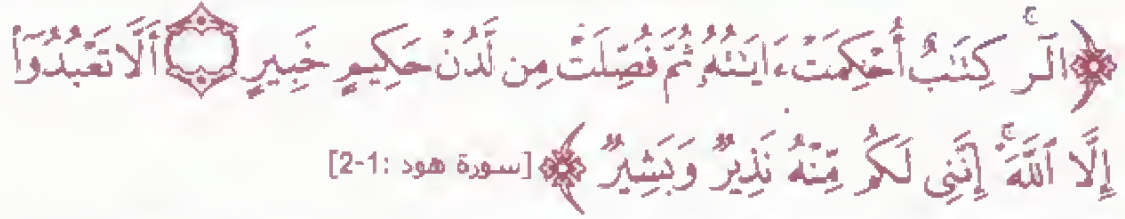 ﴿الٓرۚ كِتَٰبٌ أُحْكِمَتْ ءَايَٰتُهُۥ ثُمَّ فُصِّلَتْ مِن لَّدُنْ حَكِيمٍ خَبِيرٍ ۝ أَلَّا تَعْبُدُوٓا۟
إِلَّا ٱللَّهَۚ إِنَّنِى لَكُم مِّنْهُ نَذِيرٌ وَبَشِيرٌ﴾ [سورة هود :1-2]